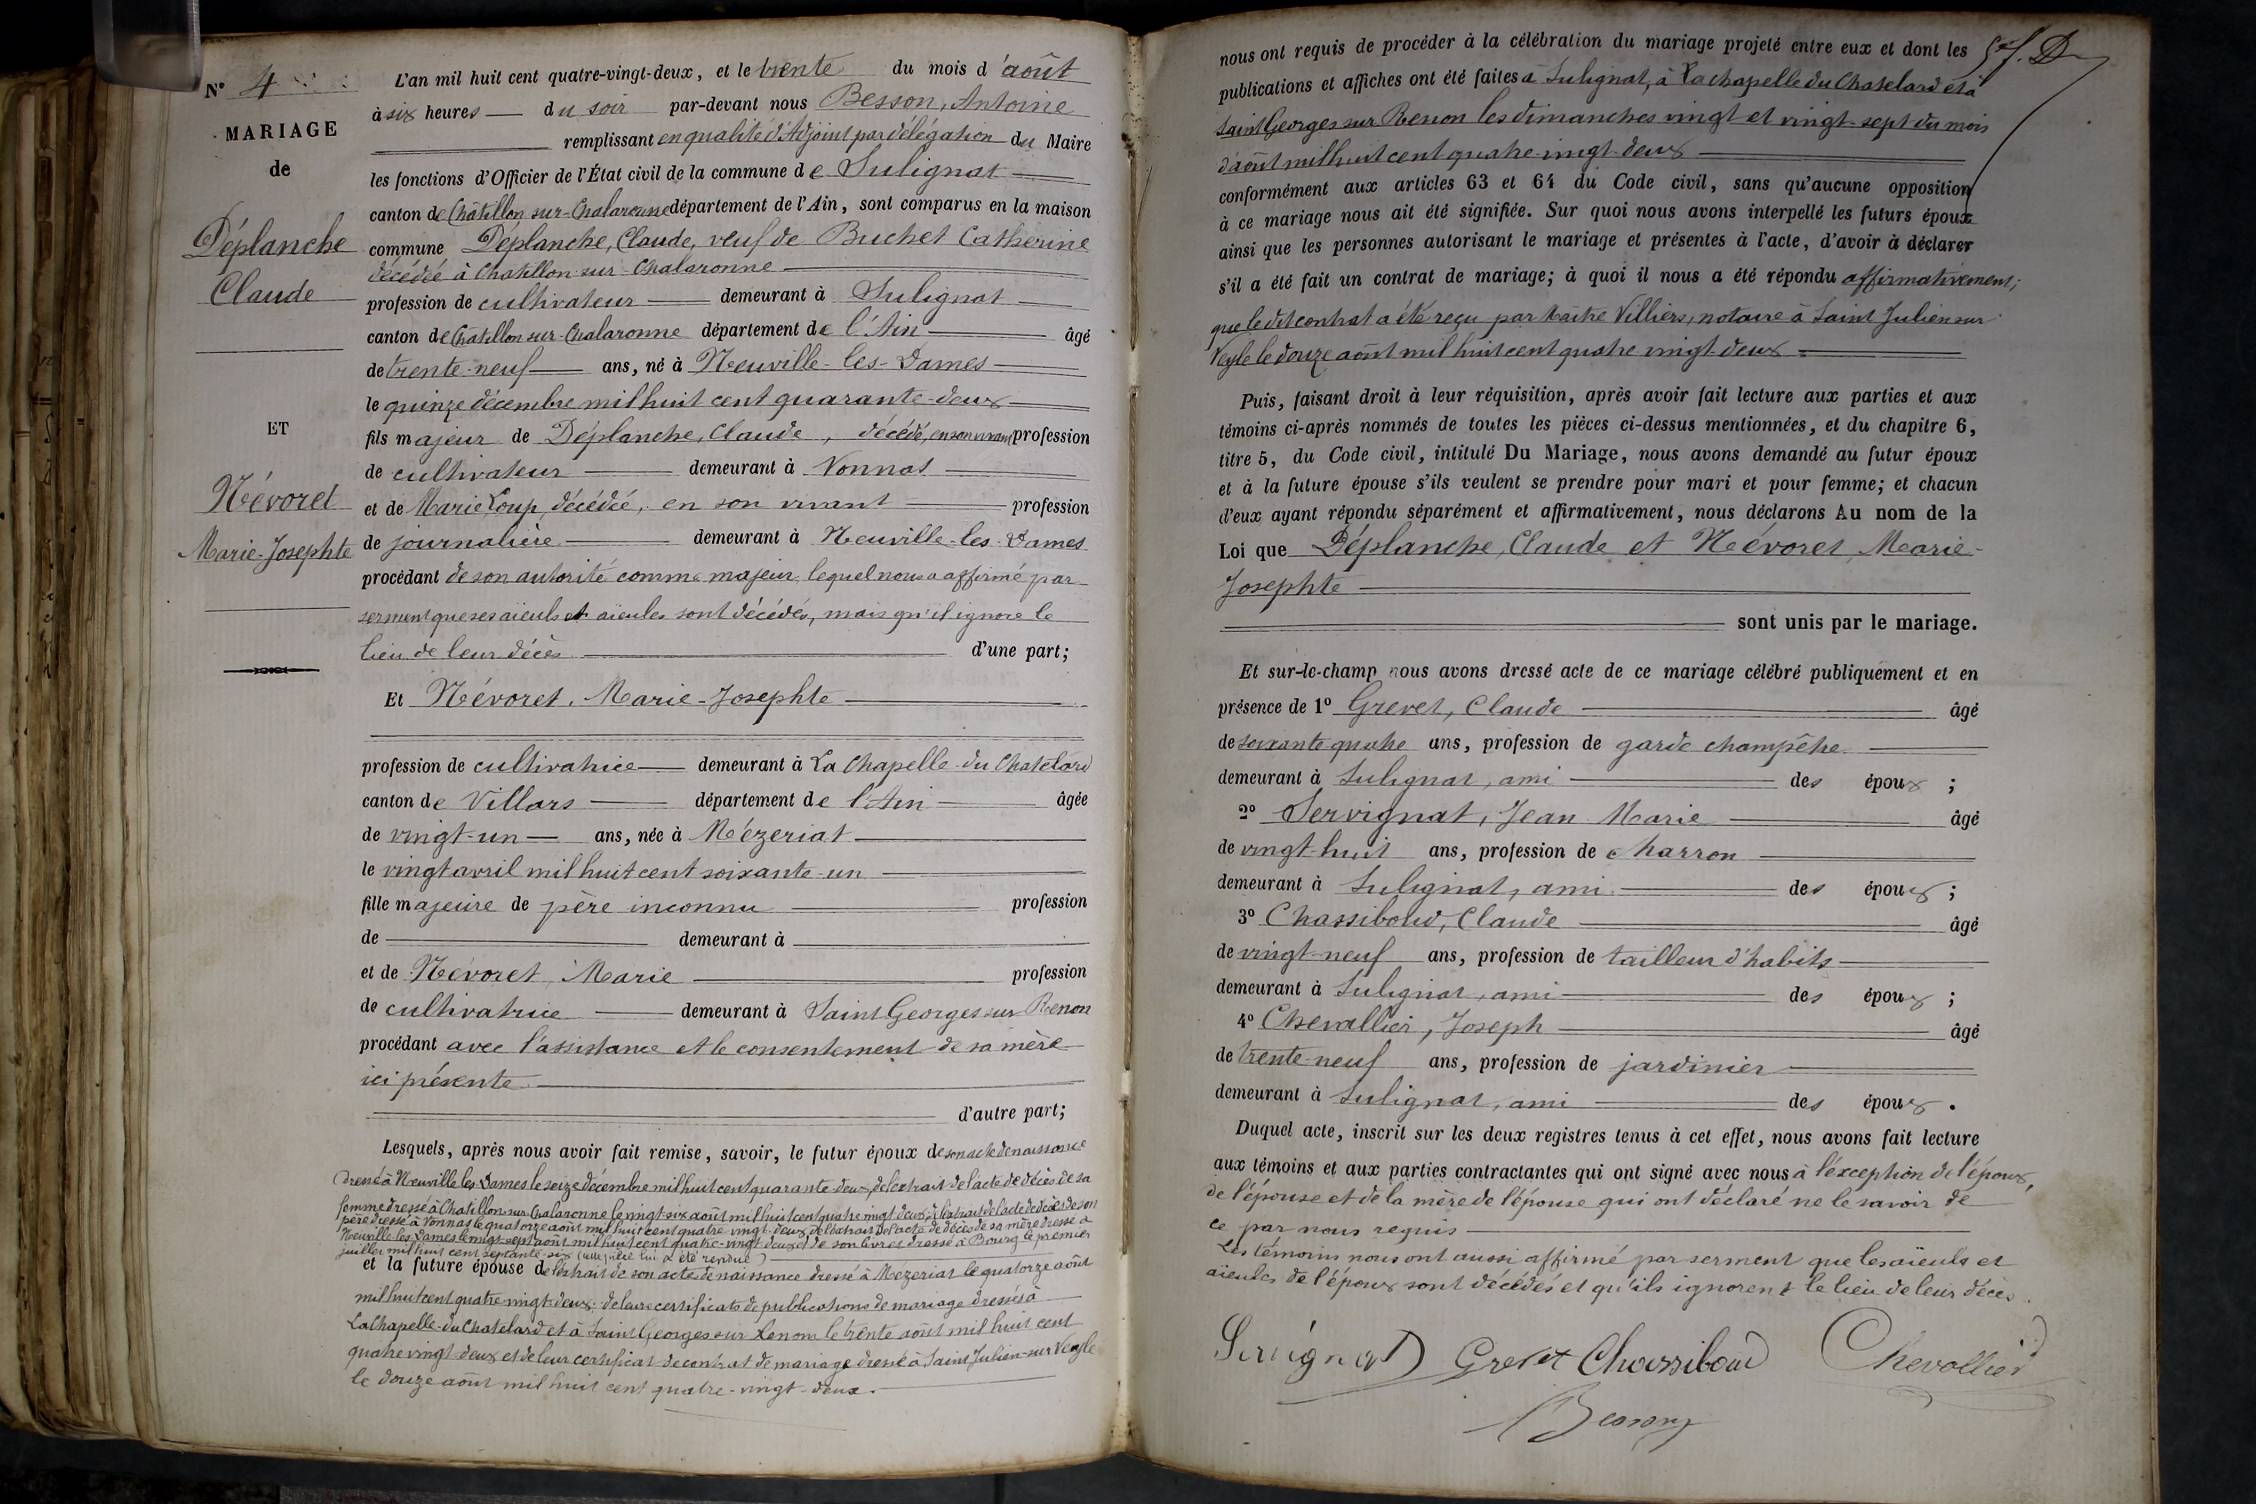 N° 4
MARIAGE
de
Déplanche
Claude
ET
Névoret
Marie-Josephte
L'an mil huit cent quatre-vingt-deux, et le trente du mois d'août
à six heures du soir par-devant nous Besson, Antoine
remplissant en qualité d'Adjoint par délégation du Maire
les fonctions d'Officier de l'État civil de la commune de Sulignat
canton de Châtillon sur-Chalaronne département de l'Ain, sont comparus en la maison
commune Déplanche, Claude, veuf de Buchet Catherine
décédée à Chatillon-sur-Chalaronne
profession de cultivateur demeurant à Sulignat
canton de Chatillon sur-Chalaronne département de l'Ain âgé
de trente-neuf ans, né à Neuville-les-Dames
le quinze décembre mil huit cent quarante-deux
fils majeur de Déplanche, Claude, décédé, en son vivant profession
de cultivateur demeurant à Vonnas
et de Marie Loup, décédée, en son vivant profession
de journalière demeurant à Neuville-les-Dames
procédant de son autorité comme majeur, lequel nous a affirmé par
serment que ses aïeuls et aïeules sont décédés, mais qu'il ignore le
lieu de leur décès d'une part;
Et Névoret, Marie-Josephte
profession de cultivatrice demeurant à La Chapelle-du-Chatelard
canton de Villars département de l'Ain âgée
de vingt-un ans, née à Mézeriat
le vingt avril mil huit cent soixante-un
fille majeure de père inconnu profession
de demeurant à
et de Névoret, Marie profession
de cultivatrice demeurant à Saint Georges sur Renon
procédant avec l'assistance et le consentement de sa mère
ici présente
d'autre part;
Lesquels, après nous avoir fait remise, savoir, le futur époux de son acte de naissance
dressé à Neuville les Dames le seize décembre mil huit cent quarante-deux, de l'extrait de l'acte de décès de sa
femme dressé à Chatillon sur Chalaronne le vingt-six août mil huit cent quatre vingt deux, de l'extrait de l'acte de décès de son
père dressé à Vonnas le quatorze août mil huit cent quatre-vingt-deux, de l'extrait de l'acte de décès de sa mère dressé à
Neuville les Dames le vingt-sept août mil huit cent quatre-vingt deux et de son livret dressé à Bourg le premier
juillet mil huit cent septante-six lui a été rendue)
et la future épouse de l'extrait de son acte de naissance dressé à Mézeriat le quatorze août
mil huit cent quatre-vingt-deux; de leurs certificats de publications de mariage dressés à
La Chapelle-du Chatelard et à Saint Georges sur Renom le trente août mil huit cent
quatre vingt-deux et de leur certificat de contrat de mariage dressé à Saint Julien-sur Veyle
le douze août mil huit cent quatre-vingt-deux.
nous ont requis de procéder à la célébration du mariage projeté entre eux et dont les
publications et affiches ont été faites à Sulignat, à La Chapelle du Chatelard et à
Saint Georges sur Renon les dimanches vingt et vingt-sept du mois
d'août mil huit cent quatre-vingt-deux
conformément aux articles 63 et 64 du Code civil, sans qu'aucune opposition
à ce mariage nous ait été signifiée. Sur quoi nous avons interpellé les futurs époux
ainsi que les personnes autorisant le mariage et présentes à l'acte, d'avoir à déclarer
s'il a été fait un contrat de mariage; à quoi il nous a été répondu affirmativement;
que le dit contrat a été reçu par Maître Villiers, notaire à Saint Julien sur
Veyle le douze août mil huit cent quatre vingt-deux
Puis, faisant droit à leur réquisition, après avoir fait lecture aux parties et aux
témoins ci-après nommés de toutes les pièces ci-dessus mentionnées, et du chapitre 6,
titre 5, du Code civil, intitulé Du Mariage, nous avons demandé au futur époux
et à la future épouse s'ils veulent se prendre pour mari et pour femme; et chacun
d'eux ayant répondu séparément et affirmativement, nous déclarons Au nom de la
Loi que Déplanche, Claude et Névoret, Marie-
Josephte
sont unis par le mariage.
Et sur-le-champ nous avons dressé acte de ce mariage célébré publiquement et en
présence de 1° Grevet, Claude âgé
de soixante quatre ans, profession de garde champêtre
demeurant à Sulignat, ami des époux ;
2° Servignat, Jean Marie âgé
de vingt-huit ans, profession de charron
demeurant à Sulignat, ami des époux ;
3° Chassiboud, Claude âgé
de vingt-neuf ans, profession de tailleur d'habits
demeurant à Sulignat, ami des époux ;
4° Chevallier, Joseph âgé
de trente-neuf ans, profession de jardinier
demeurant à Sulignat, ami des époux .
Duquel acte, inscrit sur les deux registres tenus à cet effet, nous avons fait lecture
aux témoins et aux parties contractantes qui ont signé avec nous à l'exception de l'époux,
de l'épouse et de la mère de l'épouse qui ont déclaré ne le savoir de
ce par nous requis
Les témoins nous ont aussi affirmé par serment que les aïeuls et
aïeules de l'époux sont décédés et qu'ils ignorent le lieu de leur décès.
Servignat Grevet Chassiboud Chevallier
Besson